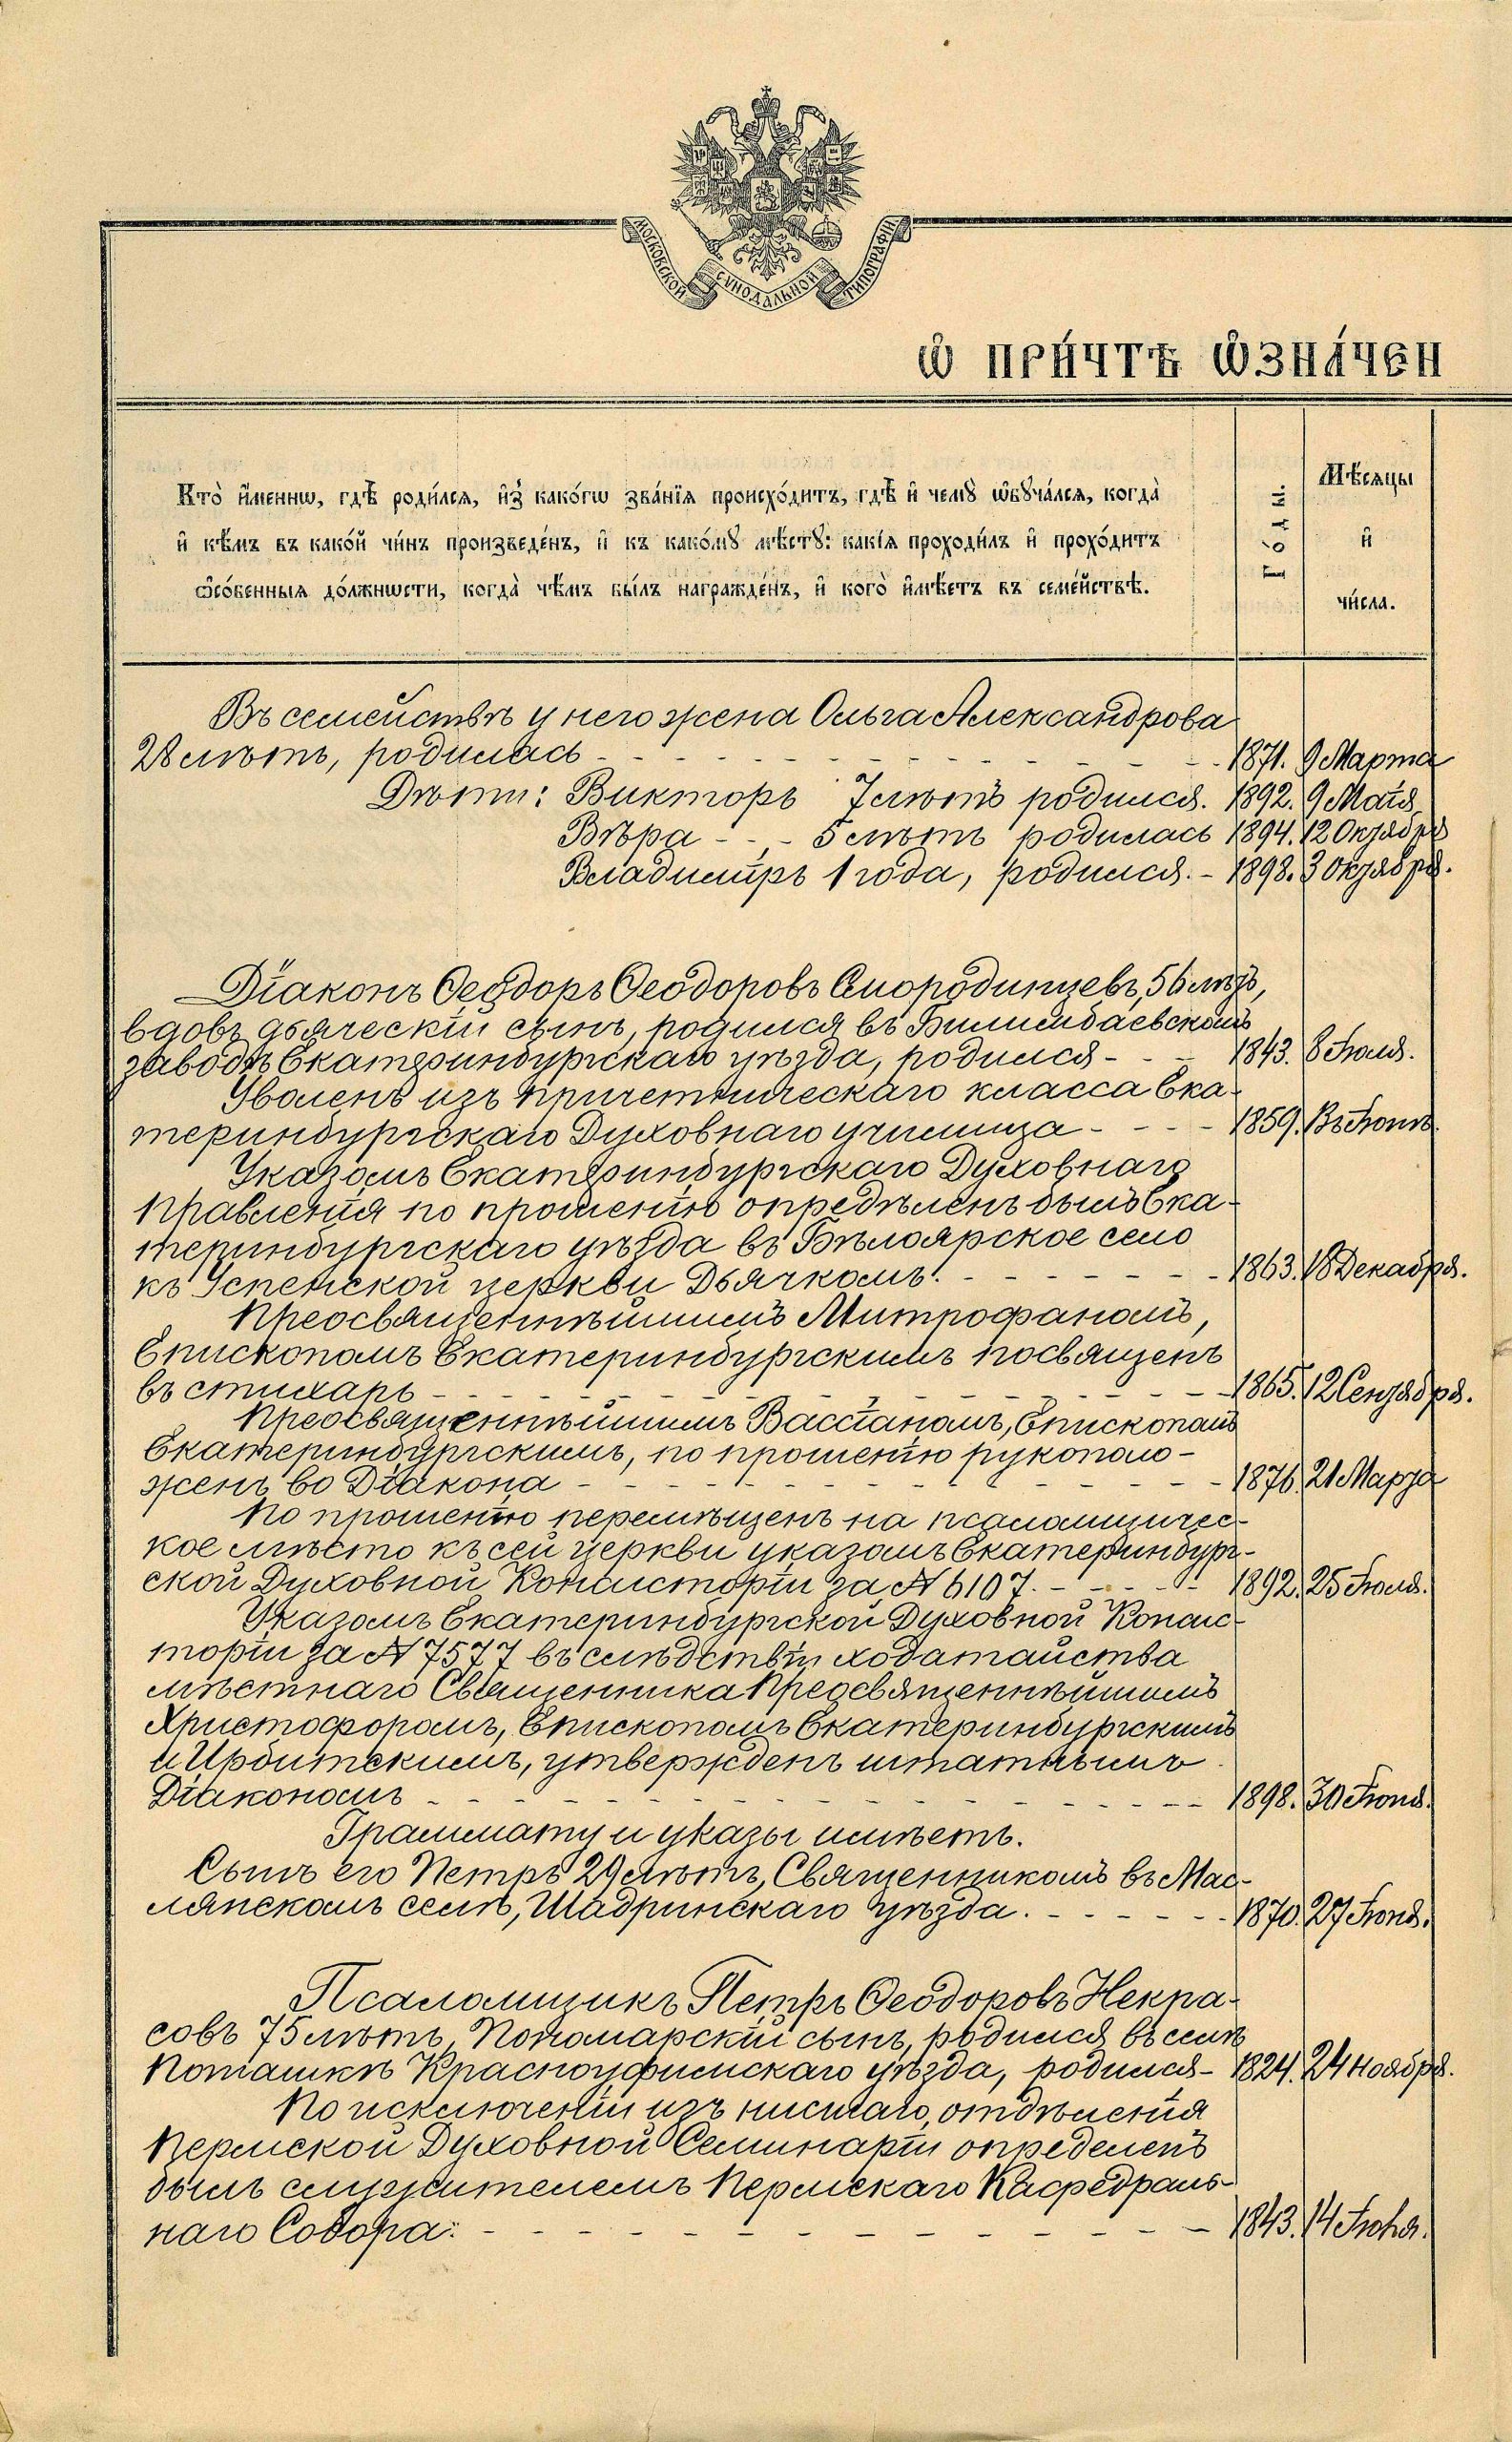 МОСКОВСКОЙ СѴНОДАЛЬНОЙ ТИПОГРАФІИ
Ѡ҆ ПРИ́ЧТѢ Ѡ҆ЗНА́ЧЕН
Кто̀ и҆́меннѡ, гдѣ̀ роди́лся, и҆з̾ како́гѡ зва́нїѧ происхо́дитъ, гдѣ̀ и҆ чемꙋ̀ ѡ҆бꙋча́лсѧ, когда̀
и҆ кѣ́мъ въ како́й чи́нъ произведе́нъ, и҆ къ како́мꙋ мѣ́стꙋ: какі́ѧ проходи́лъ и҆ прохо́дитъ
ѻ҆со́бенныѧ до́лжнѡсти, когда̀ чѣ́мъ бы́лъ награжде́нъ, и҆ кого̀ и҆мѣ́етъ въ семе́йствѣ.
Го́ды.
Мѣ́сѧцы
и҆
чи́сла.
Въ семействѣ у него жена Ольга Александрова
28 лѣтъ, родилась - - - 1871. 9 Марта
Дѣти: Викторъ 7 лѣтъ родился. 1892. 9 Маія
Вѣра - - - 5 лѣтъ родилась 1894. 12 Октября
Владимiръ 1 года, родился. - 1898. 3 Октября.
Діаконъ Ѳеодоръ Ѳеодоровъ Смородинцевъ, 56 лѣтъ,
вдовъ, дьяческій сынъ, родился въ Билимбаевскомъ
заводѣ Екатеринбургскаго уѣзда, родился - - - 1843. 8 Іюля.
Уволенъ изъ причетническаго класса Ека-
теринбургскаго Духовнаго училища - - - - 1859. Въ Іюлѣ.
Указомъ Екатеринбургскаго Духовнаго
Правленія по прошенію опредѣленъ былъ Ека-
теринбургскаго уѣзда въ Бѣлоярское село
къ Успенской церкви Дьячкомъ. - - - 1863. 18 Декабря.
Преосвященнѣйшимъ Митрофаномъ,
Епископомъ Екатеринбургскимъ посвященъ
въ стихарь - - - 1865. 12 Сентября.
Преосвященнѣйшимъ Вассіаномъ, Епископомъ
Екатеринбургскимъ, по прошенію рукополо-
женъ во Діакона - - - 1876. 21 Марта
По прошенію перемѣщенъ на псаломщичес-
кое мѣсто къ сей церкви указомъ Екатеринбург-
ской Духовной Консисторіи за № 6107. - - - 1892. 25 Іюля.
Указомъ Екатеринбургской Духовной Консис-
торіи за № 7577 въ слѣдствіи ходатайства
мѣстнаго Священника Преосвященнѣйшимъ
Христофоромъ, Епископомъ Екатеринбургскимъ
и Ирбитскимъ, утвержденъ штатнымъ
Діакономъ - - - 1898. 30 Іюня.
Граммату и указы имѣетъ.
Сынъ его Петръ 29 лѣтъ, Священникомъ въ Мас-
лянскомъ селѣ, Шадринскаго уѣзда. - - - 1870. 27 Іюня.
Псаломщикъ Петръ Ѳеодоровъ Некра-
совъ 75 лѣтъ, Пономарскій сынъ, родился въ селѣ
Поташкѣ Красноуфимскаго уѣзда, родился - 1824. 24 Ноября.
По исключеніи изъ нисшаго отдѣленія
Пермской Духовной Семинаріи определенъ
былъ служителемъ Пермскаго Каѳедраль-
наго Собора: - - - 1843. 14 Іюня.